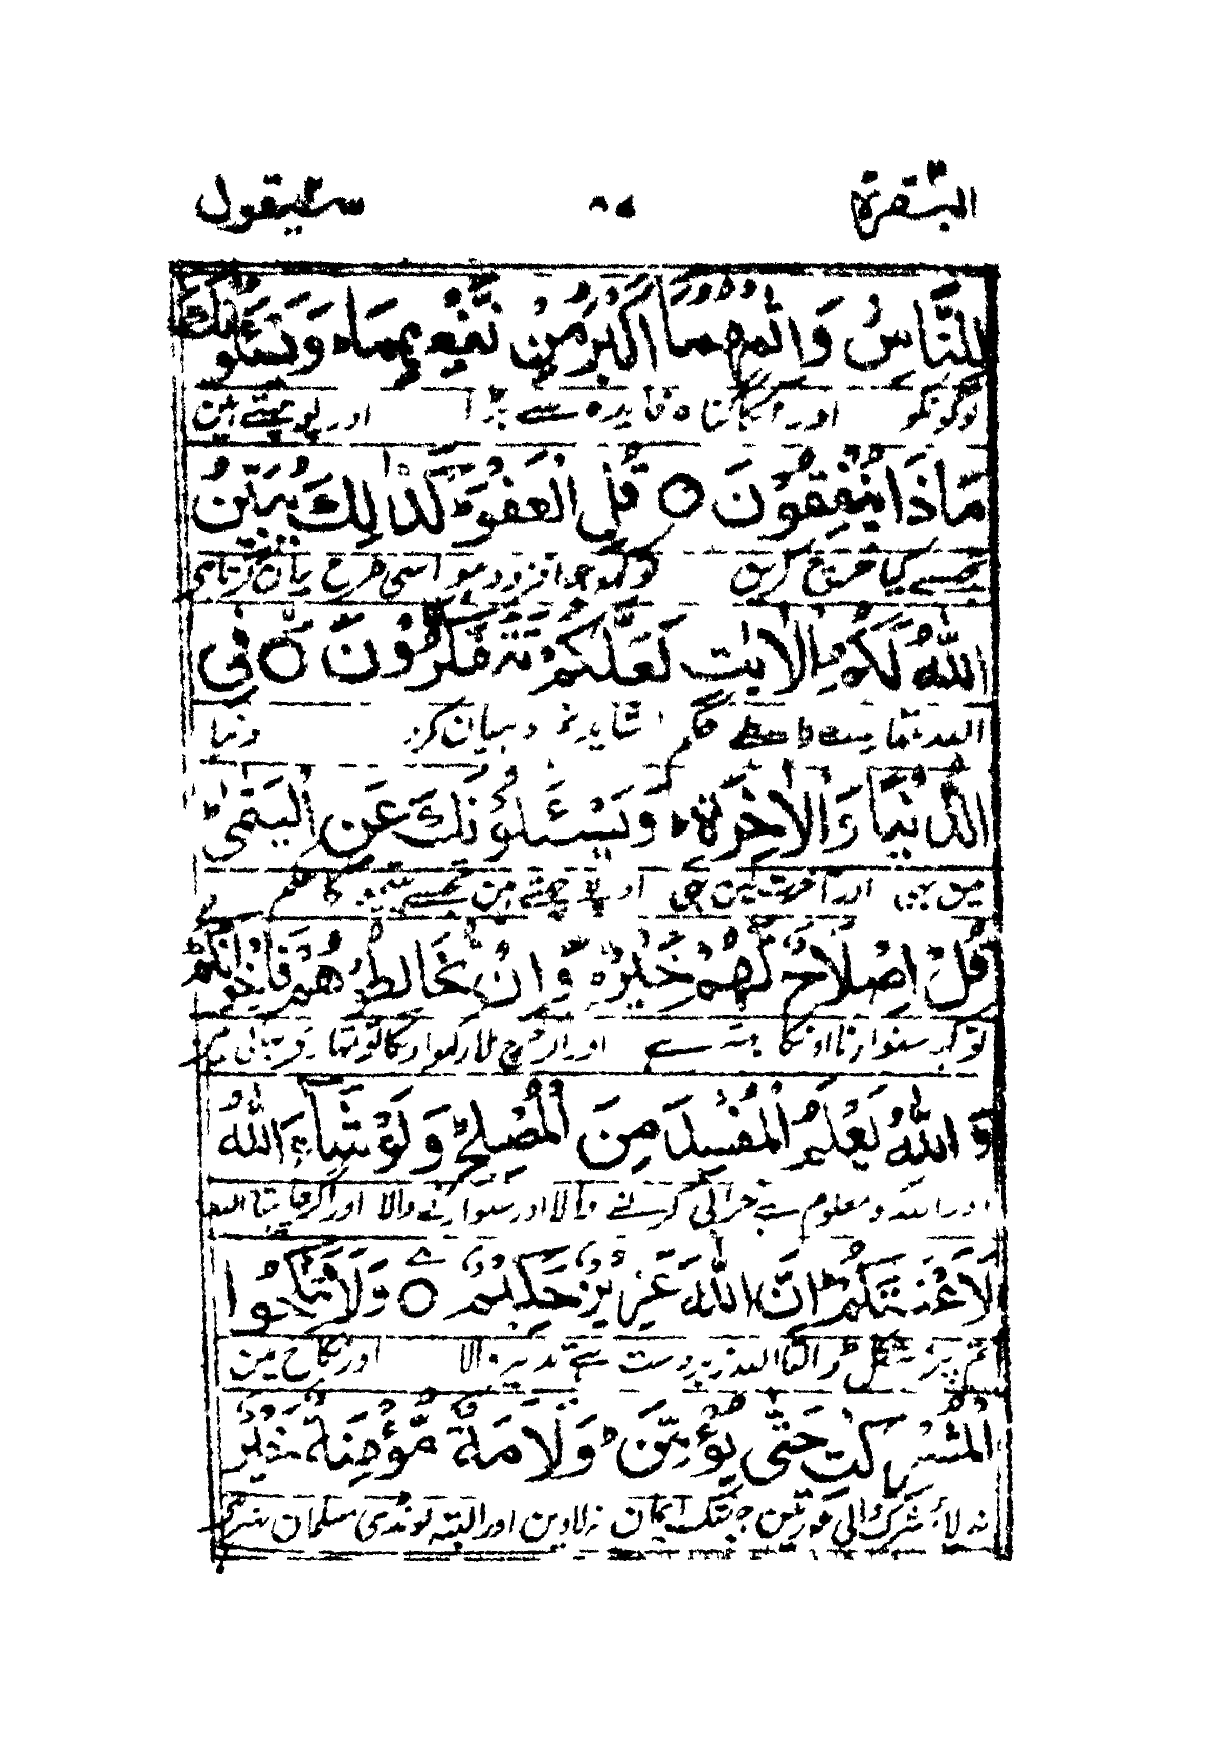 البقرة ٥٨ سيقول
لِلنَّاسِ وَاِثْمُهُمَا اَكْبَرُ مِنْ نَّفْعِهِمَا وَيَسْـَٔلُوْنَكَ
لوگونکو اور گناہ فایدہ سے بڑا اور پوچھتے ہین
مَاذَا يُنْفِقُوْنَ ○ قُلِ الْعَفْوَ كَذٰلِكَ يُبَيِّنُ
تجھسے کیا خرچ کرین تو کہہ جو افزود ہو اسی طرح بیان کرتا ہی
اللّٰهُ لَكُمُ الْاٰيٰتِ لَعَلَّكُمْ تَتَفَكَّرُوْنَ ○ فِي
اللہ تمہارے واسطے حکم شاید تم دہیان کرو دنیا
الدُّنْيَا وَالْاٰخِرَةِ وَيَسْـَٔلُوْنَكَ عَنِ الْيَتٰمٰى
مین بہی اور آخرت مین بہی اور پوچھتے ہین تجھسے یتیمو کا حکم
قُلْ اِصْلَاحٌ لَّهُمْ خَيْرٌ وَاِنْ تُخَالِطُوْهُمْ فَاِخْوَانُكُمْ
تو کہہ سنوارنا اونکا بہتر ہے اور اگر خرچ ملا رکہو اونکا تو تمہارے
وَاللّٰهُ يَعْلَمُ الْمُفْسِدَ مِنَ الْمُصْلِحِ وَلَوْ شَآءَ اللّٰهُ
اور اللہ کو معلوم ہے خرابی کرنے والا اور سنوارنے والا اور اگر چاہتا اللہ
لَاَعْنَتَكُمْ اِنَّ اللّٰهَ عَزِيْزٌ حَكِيْمٌ ○ وَلَا تَنْكِحُوا
تم پر مشکل ڈالتا اللہ زبردست ہے تدبیر والا اور نکاح مین
الْمُشْرِكٰتِ حَتّٰى يُؤْمِنَّ وَلَاَمَةٌ مُّؤْمِنَةٌ خَيْرٌ
نہ لاؤ شرک والی عورتین جبتک ایمان نہ لاوین اور البتہ لونڈی مسلمان بہتر